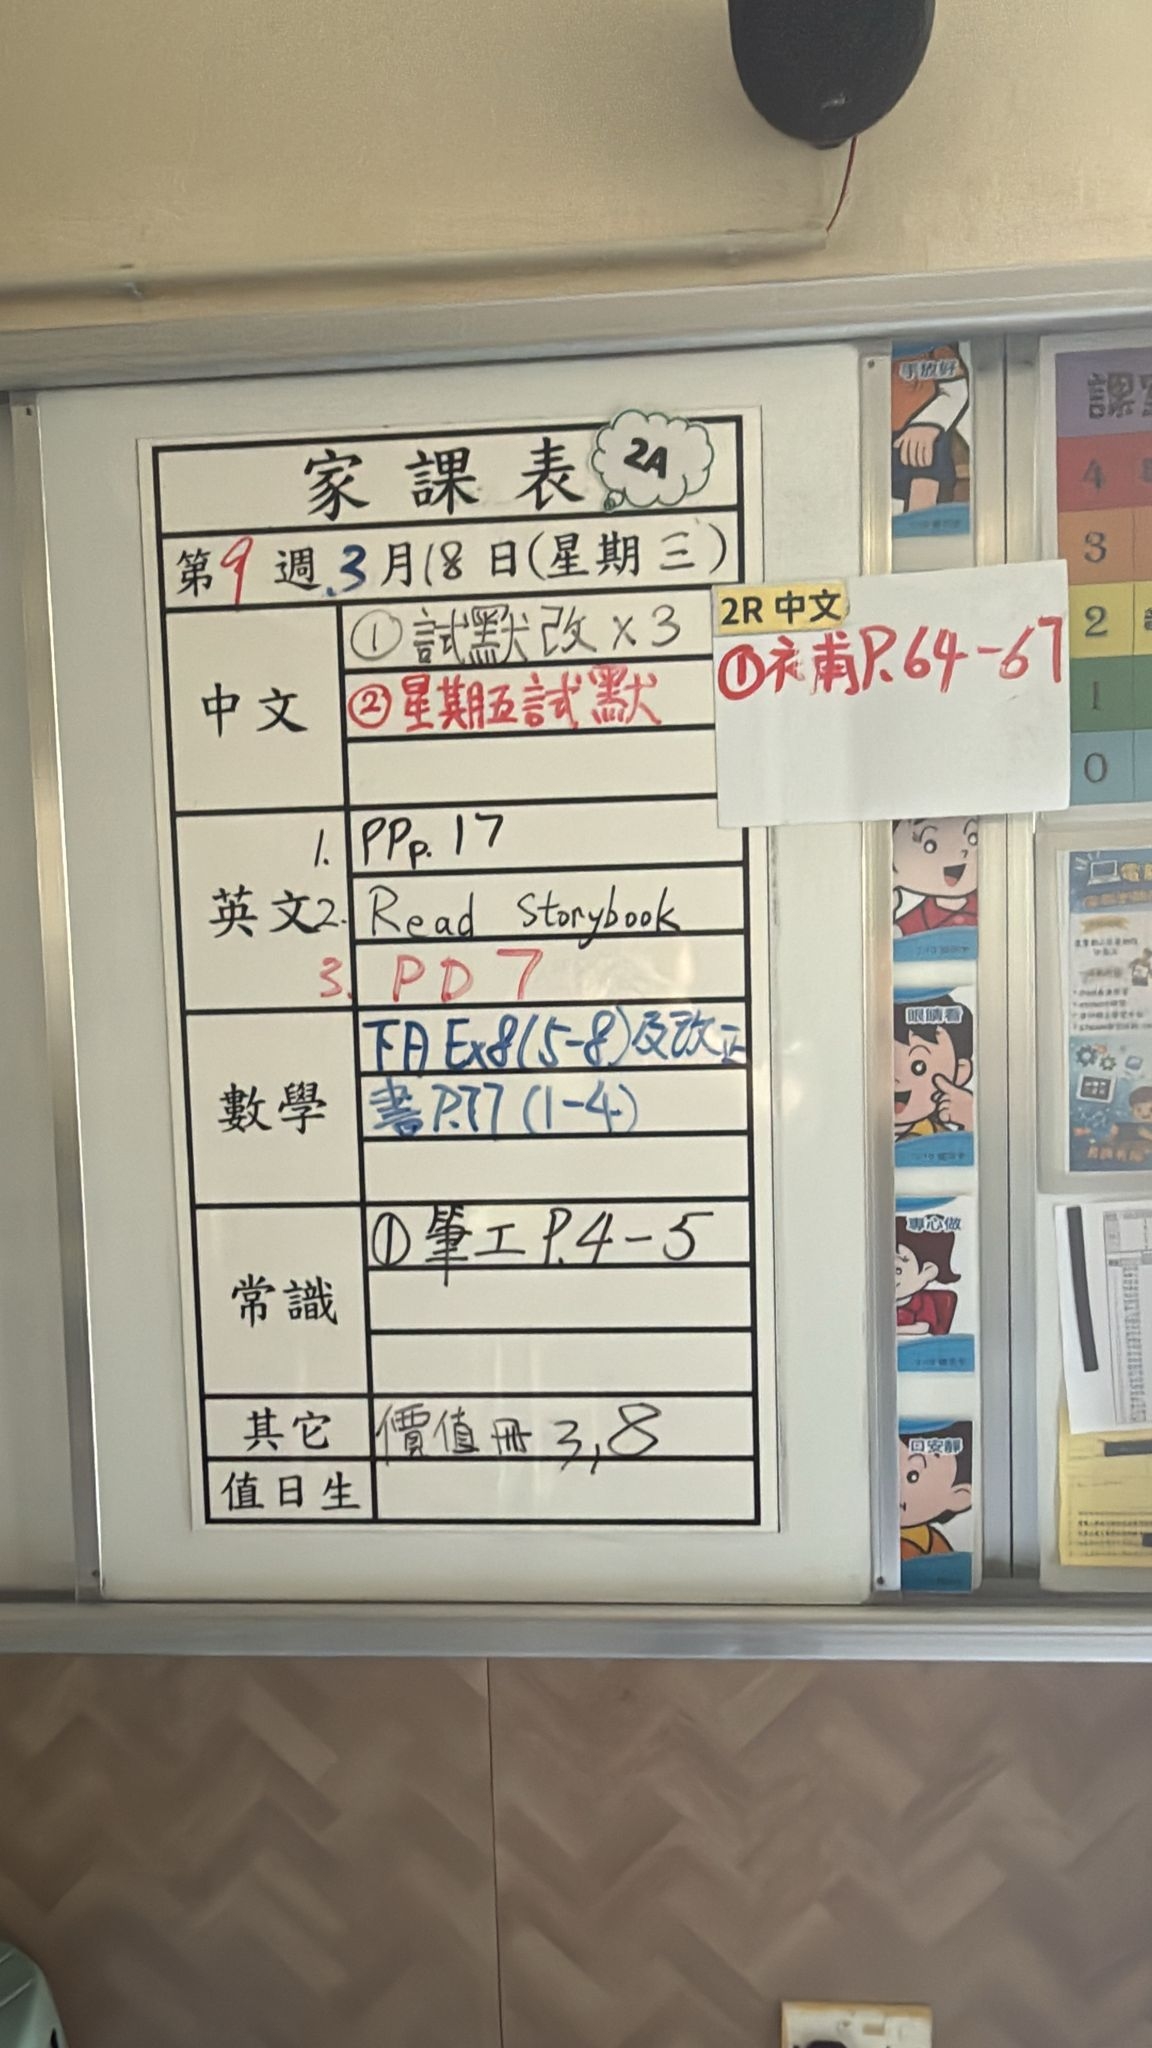 家課表 2A
第9週 3月18日(星期三)
中文
①試默改x3
②星期五試默
2R 中文
①衭甫P.64-67
英文
1. PP p.17
2. Read Storybook
3. PD 7
數學
下A Ex8(5-8)及改正
書P.77(1-4)
常識
①筆工P.4-5
其它
價值冊 3,8
值日生
手放好
眼睛看
專心做
口安靜
課室
4
3
2
1
0